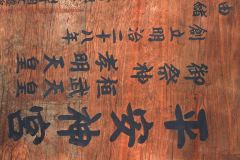 平安神宮
御祭神 桓武天皇
孝明天皇
創立 明治二十八年
由緒